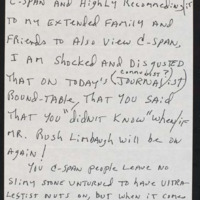 C-SPAN AND HIGHLY RECOMMEND IT
TO MY EXTENDED FAMILY AND
FRIENDS TO ALSO VIEW C-SPAN,
I AM SHOCKED AND DISGUSTED
THAT ON TODAY'S (JOURNALIST)
(COMMUNIST?)
ROUND-TABLE, THAT YOU SAID
THAT YOU "DIDN'T KNOW" WHEN/IF
MR. RUSH LIMBAUGH WILL BE ON
AGAIN!
YOU C-SPAN PEOPLE LEAVE NO
SLIMY STONE UNTURNED TO HAVE ULTRA-
LEFTIST NUTS ON, BUT WHEN IT COMES